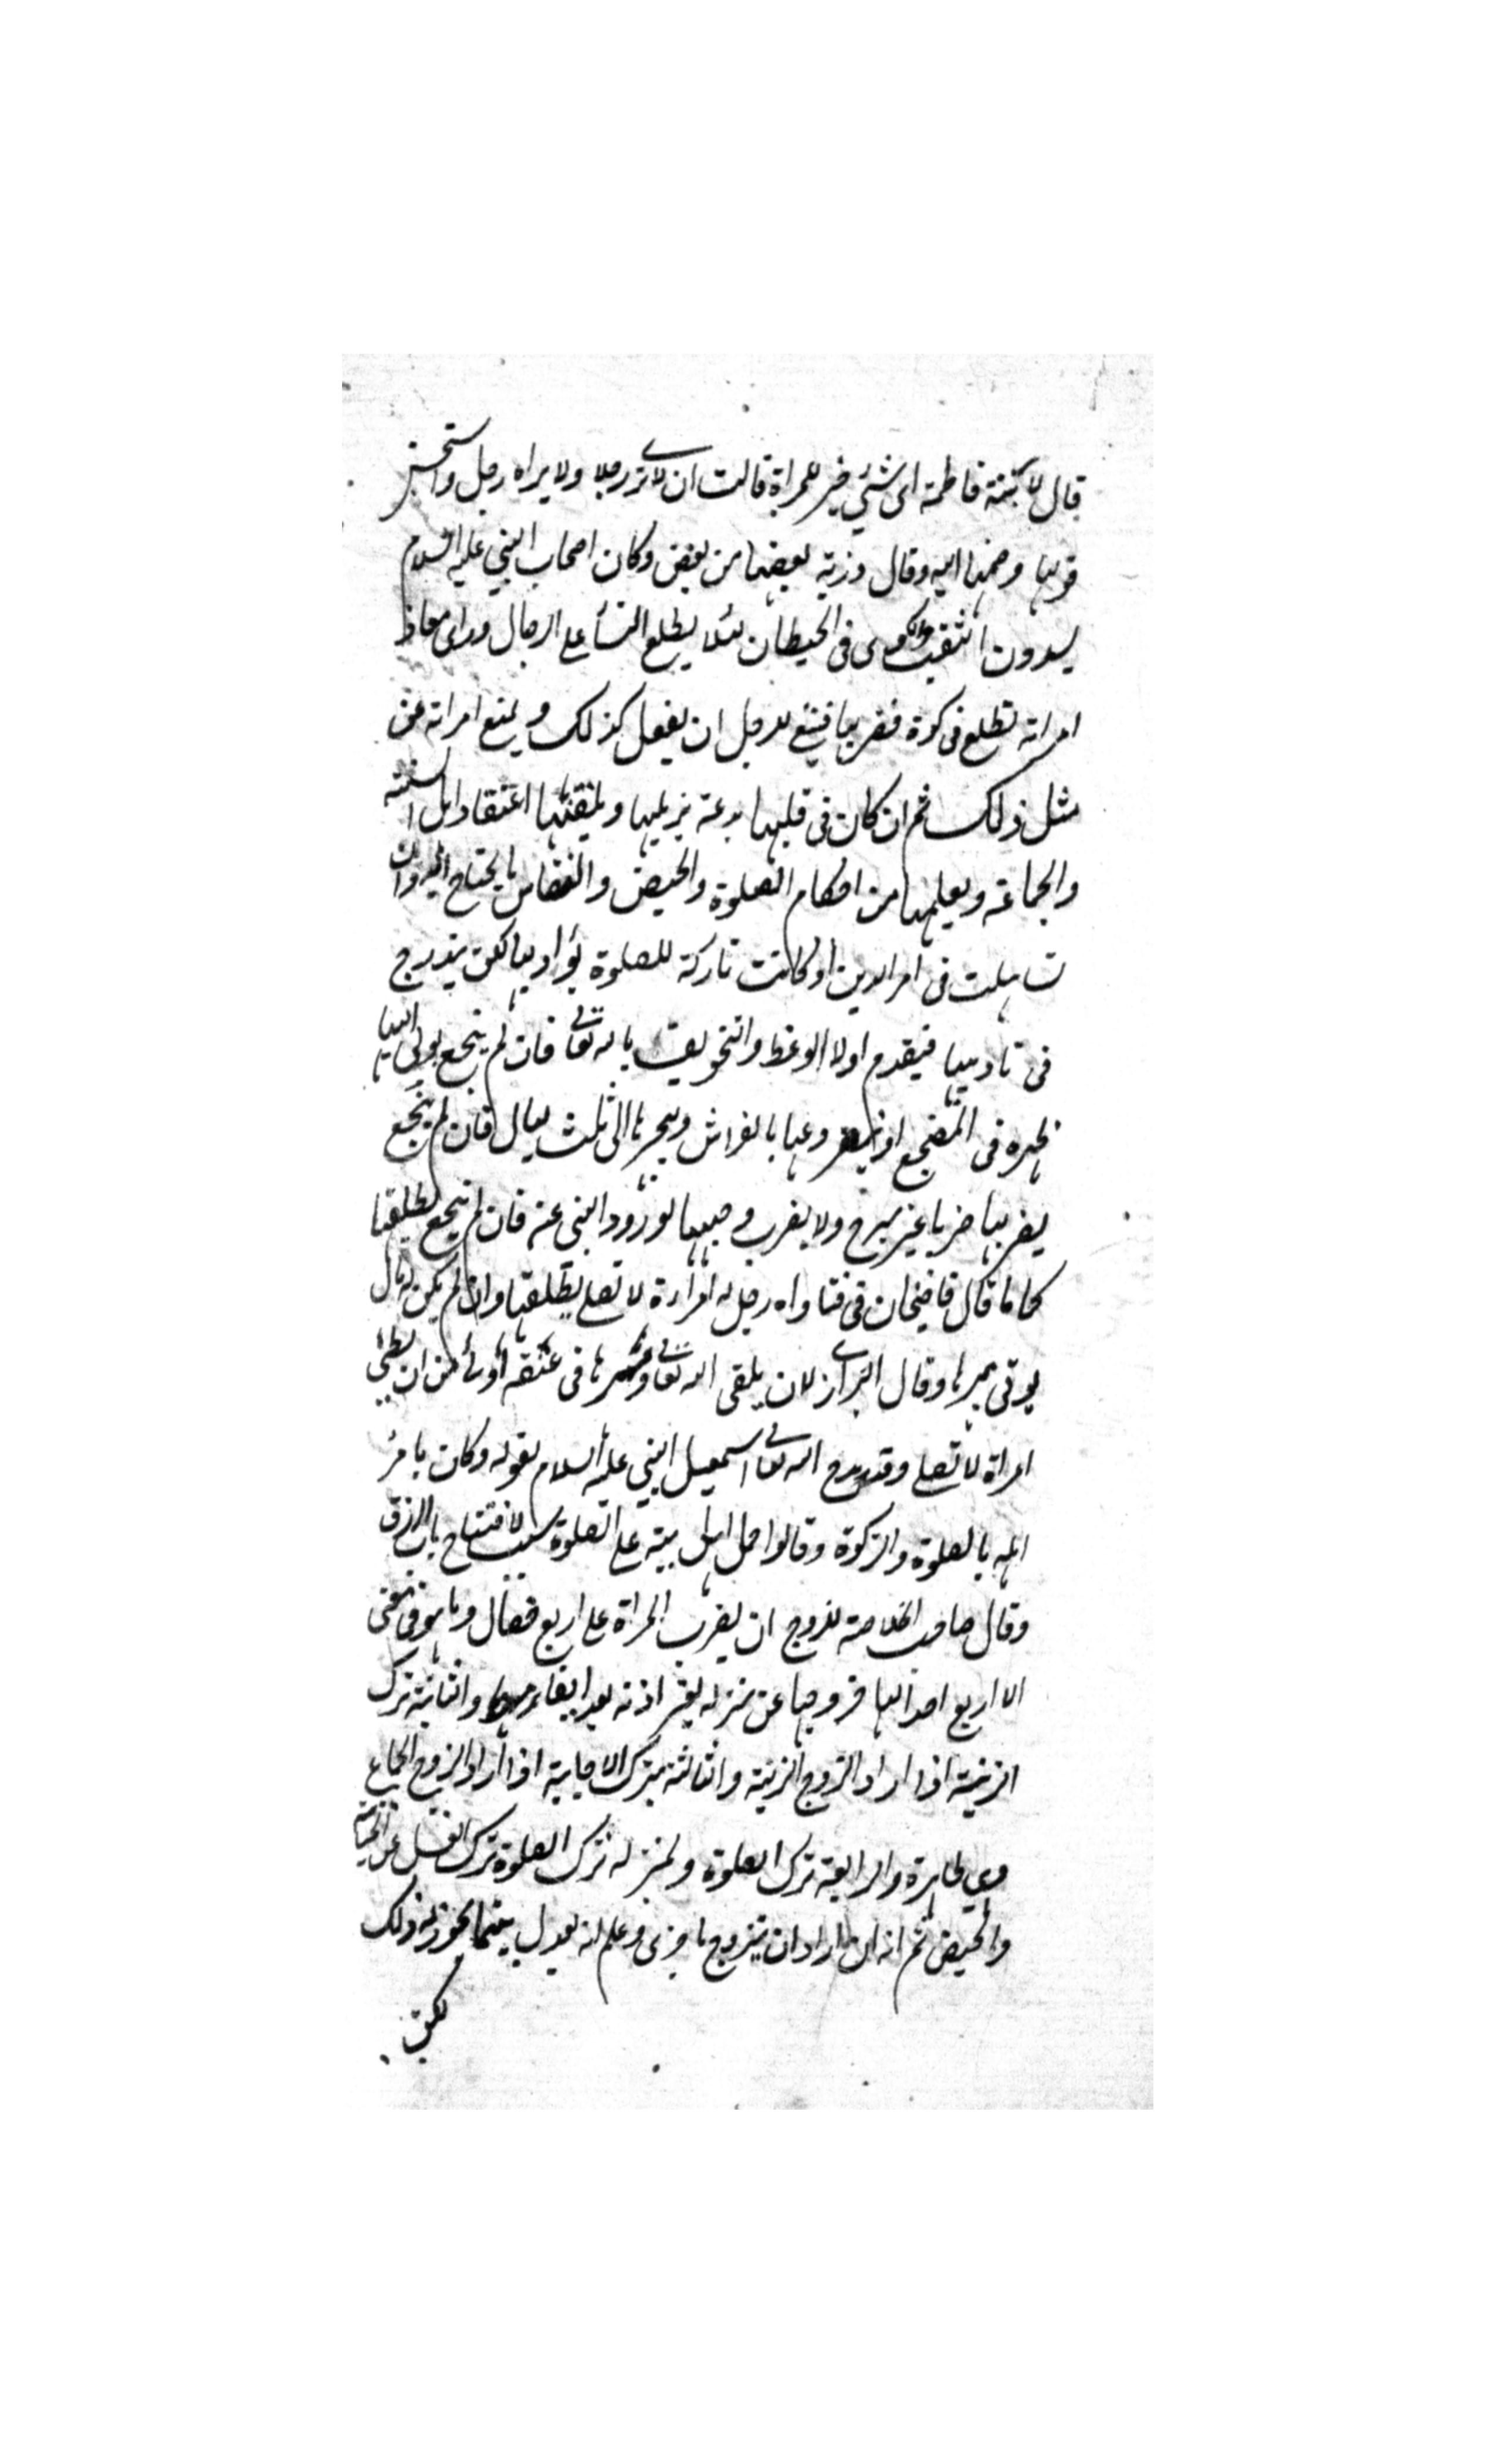 قال لابنته فاطمة اى شئ خير للمراة قالت ان لا ترى رجلا ولا يراه رجل واستحسن
قولها وضمها اليه وقال ذرية بعضها من بعض وكان اصحاب النبي عليه السلام
يسدون الثقب والكوى فى الحيطان لئلا يطلع النسأ على الرجال وراى معاذ
امراته تطلع فى كوة فضربها فينبغ للرجل ان يفعل كذلك ويمنع امراته عن
مثل ذلك ثم ان كان فى قلبها بدعة يزيلها ويلقنها اعتقاد اهل السنة
والجماعة ويعلمها من احكام الصلوة والحيض والنفاس ما يحتاج اليه وان
تساهلت فى امر الدين او كانت تاركة للصلوة يؤدبها لكن يتدرج
فى تاديبها فيقدم اولا الوعظ والتخويف بالله تعالى فان لم ينجع يولى اليها
ظهره فى المضجع او ينفرد عنها بالفراش ويهجرها الى ثلث ليال فان لم ينجع
يضربها ضربا غير مبرح ولا يضرب وجهها لورود النهى عنه فان لم ينجع يطلقها
كما قال قاضيخان فى فتاواه رجل له امراة لا تصلى يطلقها وان لم يكن له مال
يوتى مهرها وقال البزازى لان يلقى الله تعالى ومهرها فى عنقه اولى من ان يطئ
امراة لا تصلى وقد مدح الله تعالى اسمعيل النبي عليه السلام بقوله وكان يامر
اهله بالصلوة والزكوة وقالوا حمل اهل بيته على الصلوة سبب لافتتاح باب الرزق
وقال صاحب الخلاصة للزوج ان يضرب المراة على اربع خصال وما هو فى معنى
الاربع احدالها خروجها عن منزله بغير اذنه بعد ايفاء مهرها والثانية ترك
الزينة اذا اراد الزوج الزينة والثالثة بترك الاجابة اذا اراد الزوج الجماع
وهى طاهرة والرابعة ترك الصلوة وبمنزلة ترك الصلوة ترك الغسل عن الجنابة
والحيض ثم انه ان اراد ان يتزوج باخرى وعلم انه يعدل بينهما يجوز له ذلك
لكن